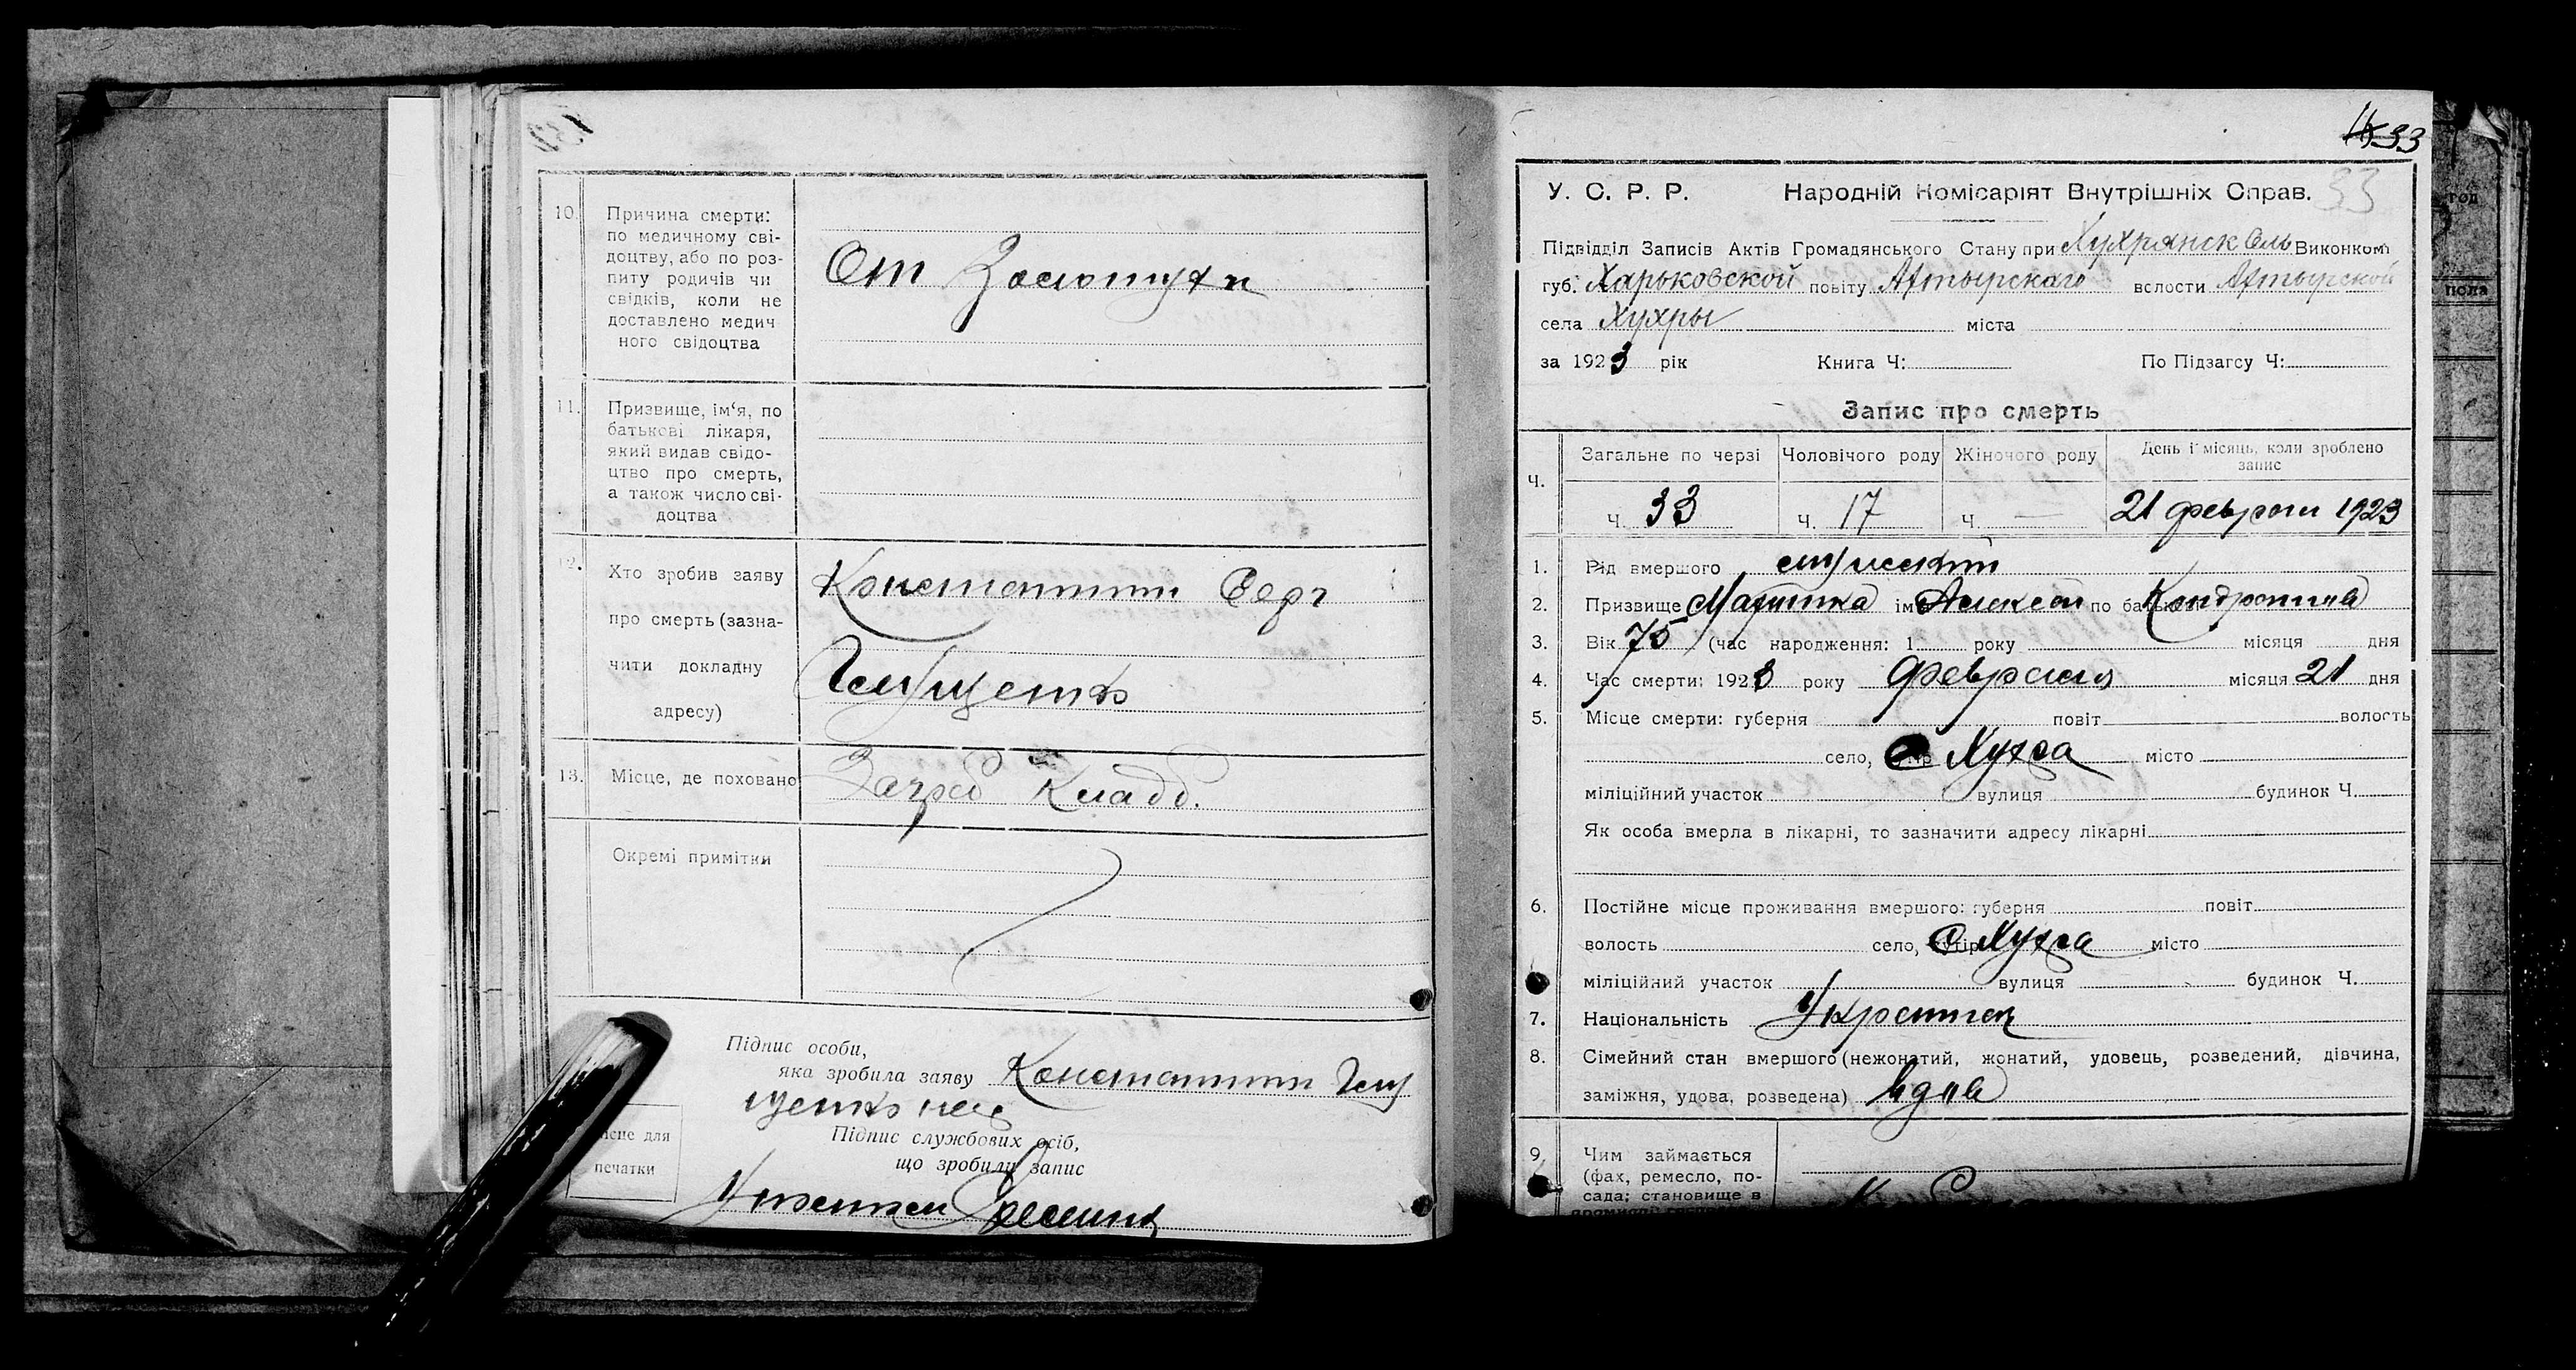 10.
Причина смерти:
по медичному сві-
доцтву, або по роз-
питу родичів чи
свідків, коли не
доставлено медич
ного свідоцтва
От
11.
Призвище, ім'я, по
батькові лікаря,
який видав свідо-
цтво про смерть,
а також число сві-
доцтва
12.
Хто зробив заяву
про смерть (зазна-
чити докладну
адресу)
Константин
13.
Місце, де поховано
Кладб.
Окремі примітки
Підпис особи,
яка зробила заяву Константин
Підпис службових осіб,
що зробили запис
Місце для
печатки
33
У. С. Р. Р. Народній Комісаріят Внутрішніх Справ. 33
Підвідділ Записів Актів Громадянського Стану при Виконкомі
губ. Харьковской повіту Ахтырскаго волости Ахтырской
села Хухры міста
за 1923 рік Книга Ч: По Підзагсу Ч:
Запис про смерть
Ч. Загальне по черзі Чоловічого роду Жіночого роду День і місяць, коли зроблено
запис
Ч. 33 Ч. 17 Ч. — 21 февраля 1923
1. Рід вмершого мужской
2. Призвище ім'я Алексей по батькові
3. Вік 75 (час народження: 1 року місяця дня
4. Час смерти: 1923 року Февраля місяця 21 дня
5. Місце смерти: губерня повіт волость
село, Хухра місто
міліційний участок вулиця будинок Ч.
Як особа вмерла в лікарні, то зазначити адресу лікарні
6. Постійне місце проживання вмершого: губерня повіт
волость село, хутір Хухра місто
міліційний участок вулиця будинок Ч.
7. Національність Украинец
8. Сімейний стан вмершого (нежонатий, жонатий, удовець, розведений, дівчина,
заміжня, удова, розведена) вдов
9. Чим займається
(фах, ремесло, по-
сада; становище в